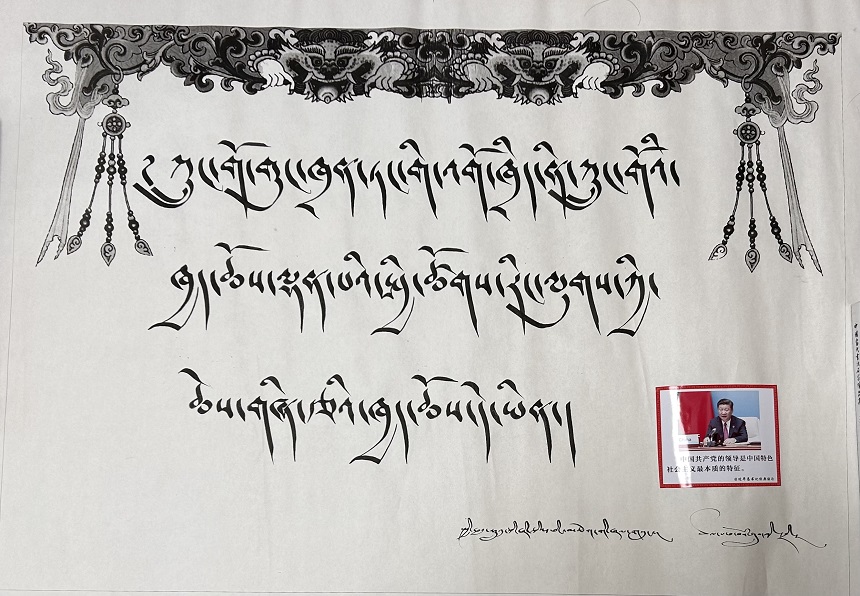 ༄ ཀྲུང་གོ་གུང་ཁྲན་ཏང་གི་འགོ་ཁྲིད་ནི་ཀྲུང་གོའི་
ཁྱད་ཆོས་ལྡན་པའི་སྤྱི་ཚོགས་རིང་ལུགས་ཀྱི་
ཆེས་གཞི་རྩའི་ཁྱད་ཆོས་དེ་ཡིན།།
中国共产党的领导是中国特色
社会主义最本质的特征。